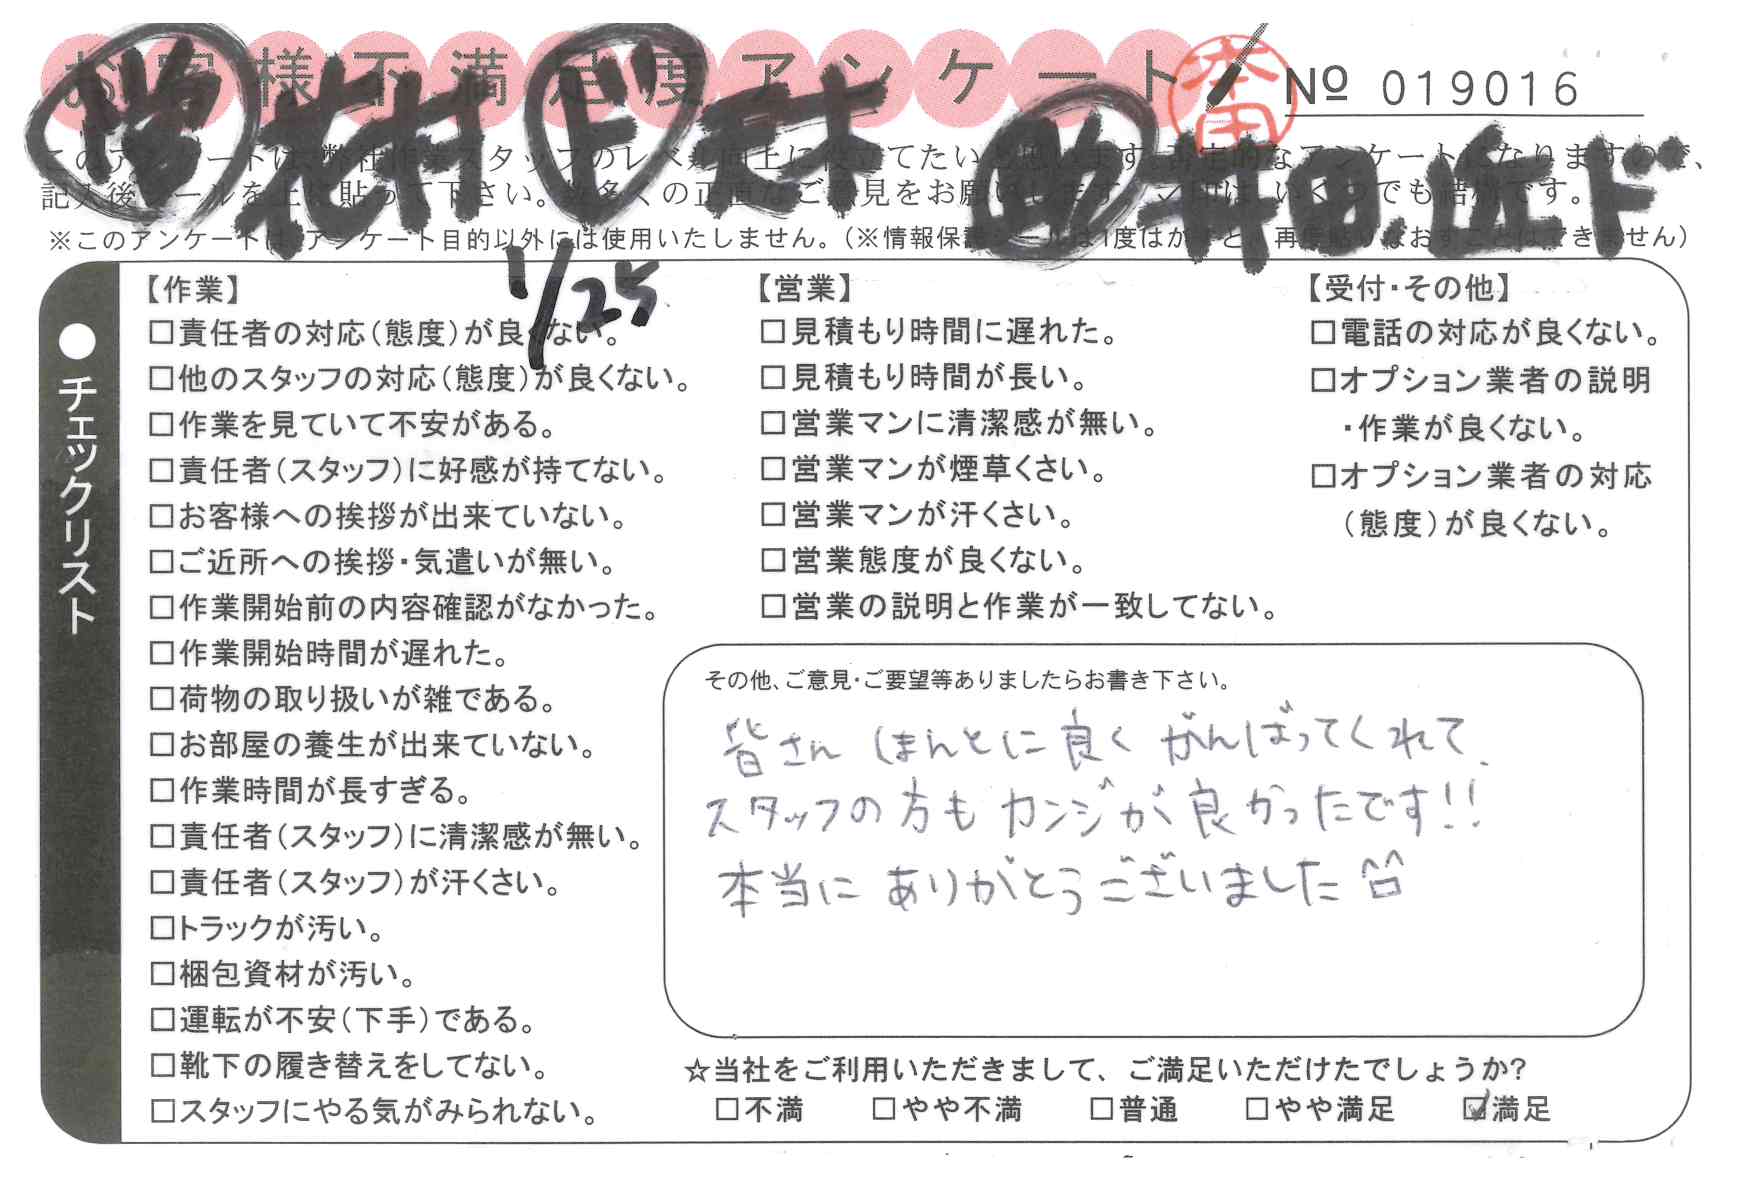 お客様不満足度アンケート
本田
№ 019016
営 花村 ド 天本 助 井田、近ド
1/25
※このアンケートは、アンケート目的以外には使用いたしません。（※情報保護シールは1度はがすと、再度貼りなおすことはできません）
●チェックリスト
【作業】
□責任者の対応（態度）が良くない。
□他のスタッフの対応（態度）が良くない。
□作業を見ていて不安がある。
□責任者（スタッフ）に好感が持てない。
□お客様への挨拶が出来ていない。
□ご近所への挨拶・気遣いが無い。
□作業開始前の内容確認がなかった。
□作業開始時間が遅れた。
□荷物の取り扱いが雑である。
□お部屋の養生が出来ていない。
□作業時間が長すぎる。
□責任者（スタッフ）に清潔感が無い。
□責任者（スタッフ）が汗くさい。
□トラックが汚い。
□梱包資材が汚い。
□運転が不安（下手）である。
□靴下の履き替えをしてない。
□スタッフにやる気がみられない。
【営業】
□見積もり時間に遅れた。
□見積もり時間が長い。
□営業マンに清潔感が無い。
□営業マンが煙草くさい。
□営業マンが汗くさい。
□営業態度が良くない。
□営業の説明と作業が一致してない。
【受付・その他】
□電話の対応が良くない。
□オプション業者の説明
・作業が良くない。
□オプション業者の対応
（態度）が良くない。
その他、ご意見・ご要望等ありましたらお書き下さい。
皆さん ほんとに良く がんばってくれて、
スタッフの方も カンジが 良かったです!!
本当に ありがとうございました^^
☆当社をご利用いただきまして、ご満足いただけたでしょうか?
□不満 □やや不満 □普通 □やや満足 ☑満足